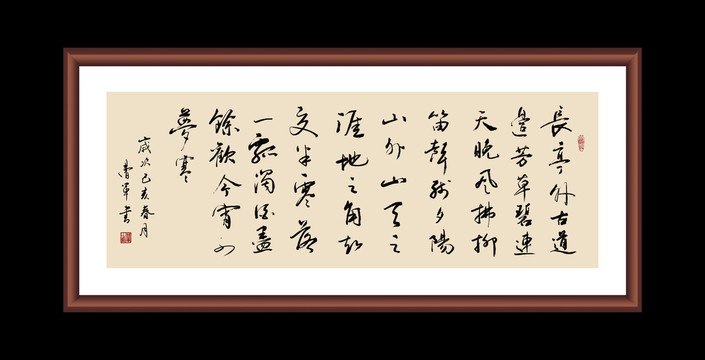 長亭外古道
邊芳草碧連
天晚風拂柳
笛聲殘夕陽
山外山天之
涯地之角知
交半零落
一瓢濁酒盡
餘歡今宵別
夢寒
歲次己亥春月
軍書